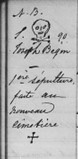 N. B.
S. 90
Joseph Begin
1ere sepulture
faite au
nouveau
cimetière